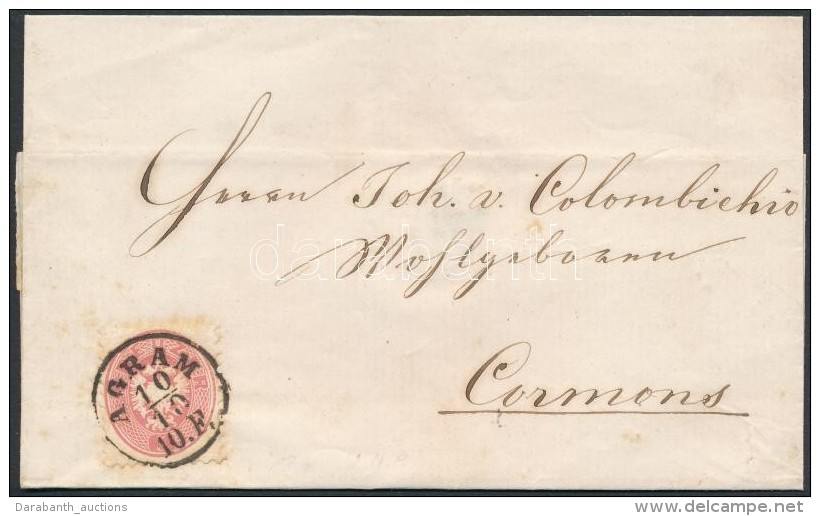 Herrn Joh. v. Colombichio
Wohlgeboren
darabanth
Cormons
AGRAM
10
10
10.F.
Darabanth_auctions
www.delcampe.net